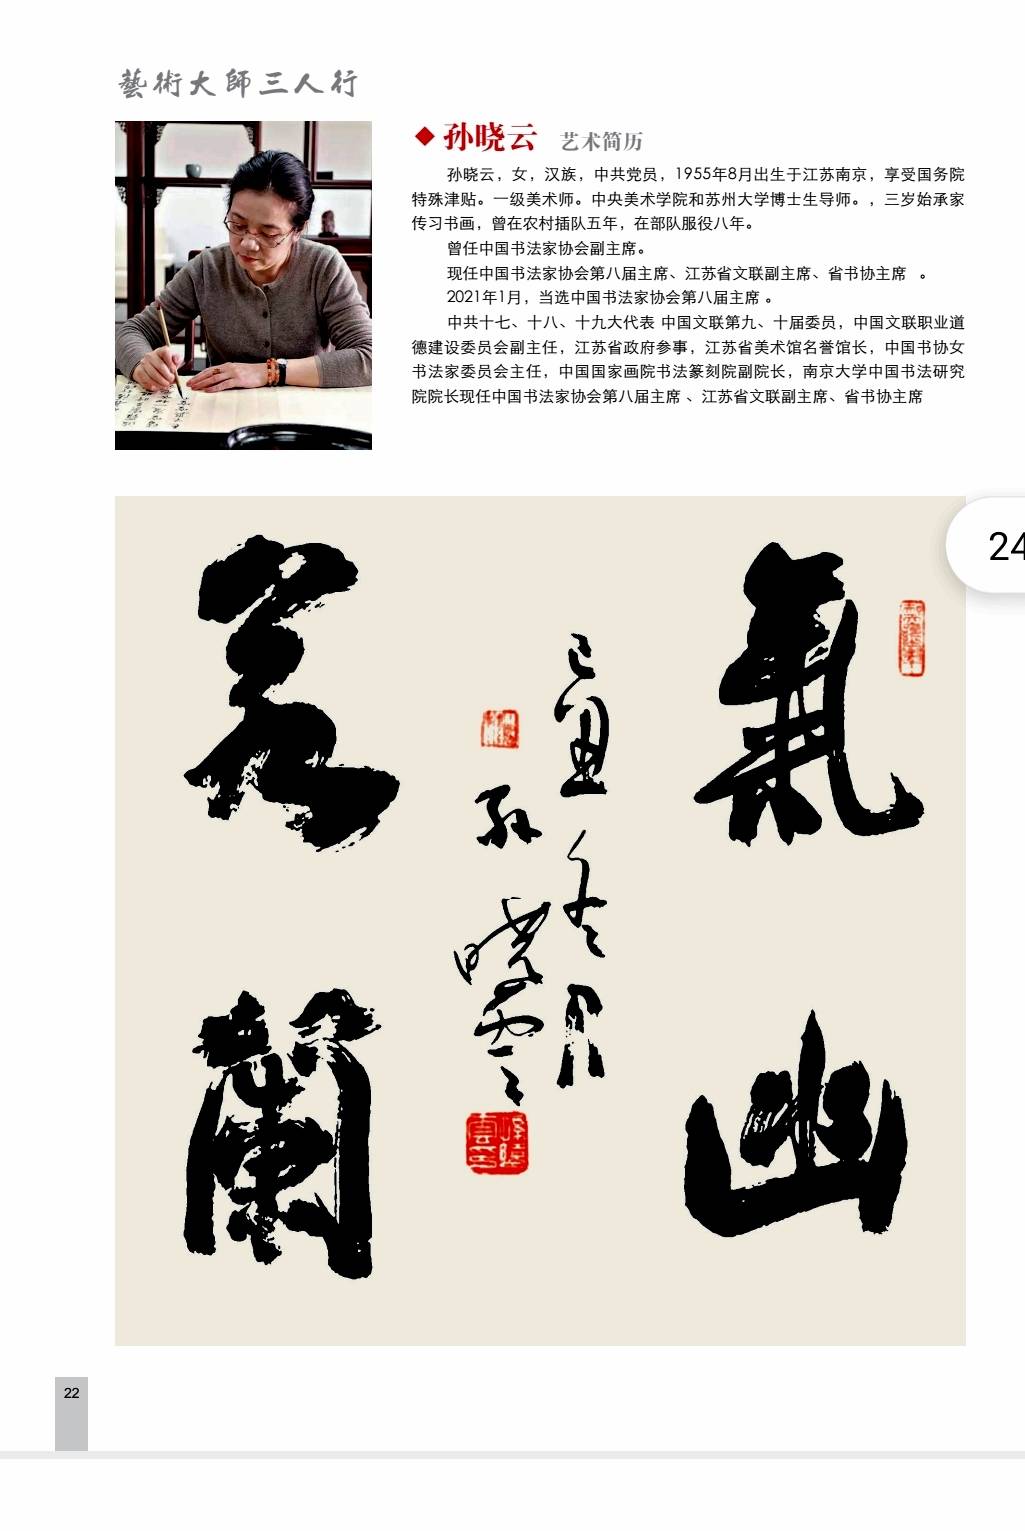 藝術大師三人行
孙晓云 艺术简历
孙晓云，女，汉族，中共党员，1955年8月出生于江苏南京，享受国务院
特殊津贴。一级美术师。中央美术学院和苏州大学博士生导师。，三岁始承家
传习书画，曾在农村插队五年，在部队服役八年。
曾任中国书法家协会副主席。
现任中国书法家协会第八届主席、江苏省文联副主席、省书协主席 。
2021年1月，当选中国书法家协会第八届主席 。
中共十七、十八、十九大代表 中国文联第九、十届委员，中国文联职业道
德建设委员会副主任，江苏省政府参事，江苏省美术馆名誉馆长，中国书协女
书法家委员会主任，中国国家画院书法篆刻院副院长，南京大学中国书法研究
院院长现任中国书法家协会第八届主席 、江苏省文联副主席、省书协主席
氣幽
若蘭
己丑冬月
孙曉雲
24
22